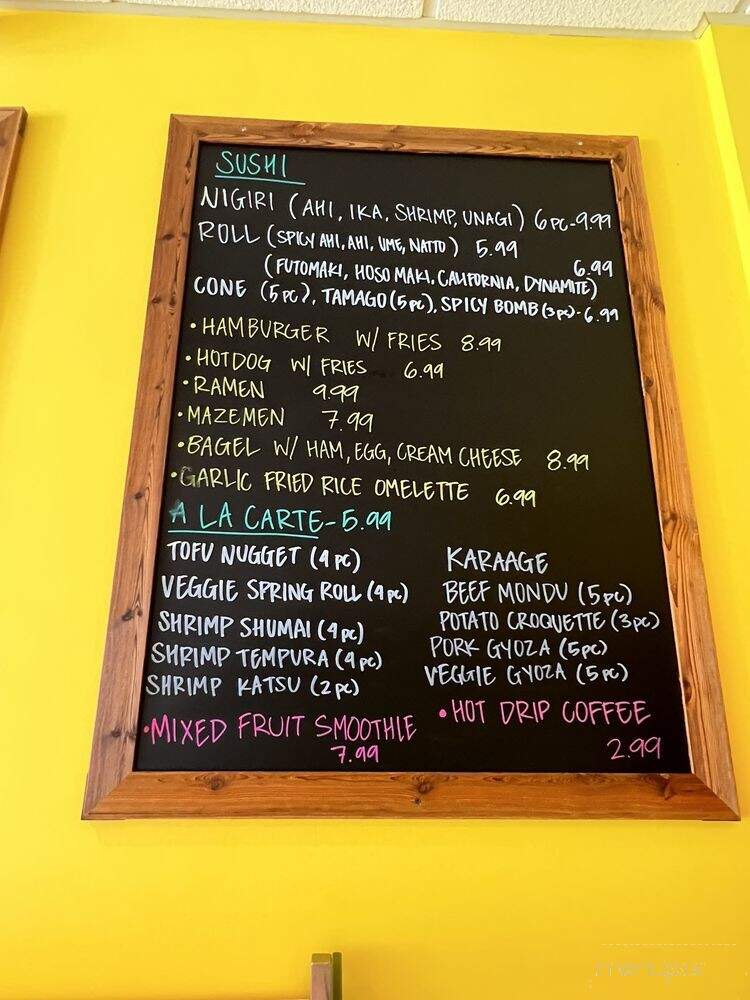 SUSHI
NIGIRI (AHI, IKA, SHRIMP, UNAGI) 6pc-9.99
ROLL (SPICY AHI, AHI, UME, NATTO) 5.99
(FUTOMAKI, HOSO MAKI, CALIFORNIA, DYNAMITE) 6.99
CONE (5pc), TAMAGO (5pc), SPICY BOMB (3pc)-6.99
•HAMBURGER W/ FRIES 8.99
•HOTDOG W/ FRIES 6.99
•RAMEN 9.99
•MAZEMEN 7.99
•BAGEL W/ HAM, EGG, CREAM CHEESE 8.99
•GARLIC FRIED RICE OMELETTE 6.99
A LA CARTE-5.99
TOFU NUGGET (4pc)
VEGGIE SPRING ROLL (4pc)
SHRIMP SHUMAI (4pc)
SHRIMP TEMPURA (4pc)
SHRIMP KATSU (2pc)
KARAAGE
BEEF MONDU (5pc)
POTATO CROQUETTE (3pc)
PORK GYOZA (5pc)
VEGGIE GYOZA (5pc)
•MIXED FRUIT SMOOTHIE
7.99
•HOT DRIP COFFEE
2.99